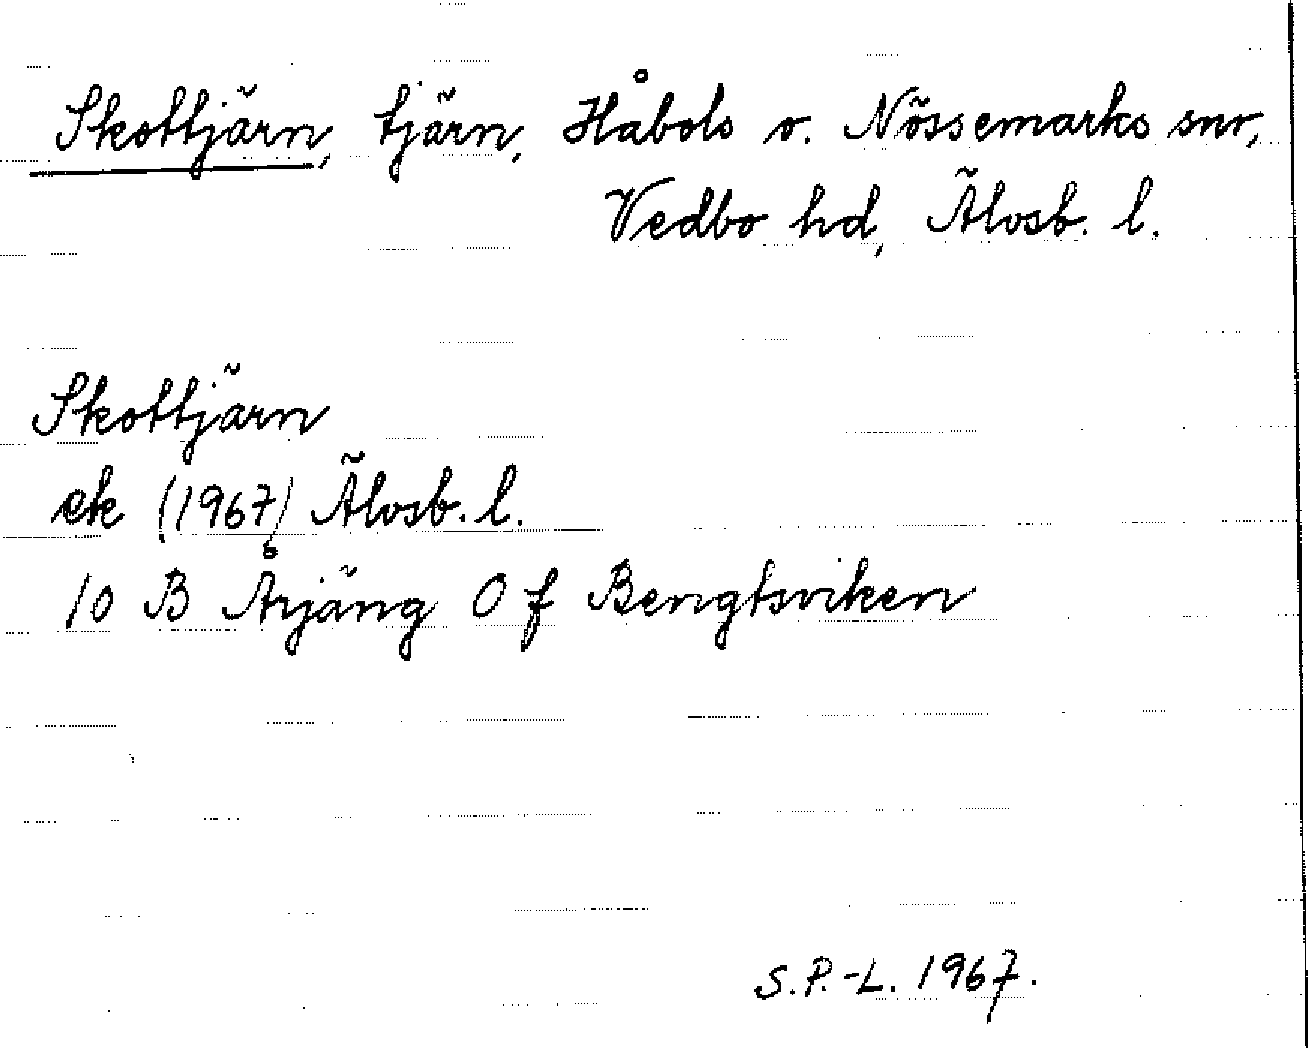 Skottjärn, tjärn, Håbols o. Nössemarks snr,
Vedbo hd, Älvsb. l.
Skottjärn
ek (1967) Älvsb. l.
10 B Årjäng O f Bengtsviken
S.P.-L. 1967.